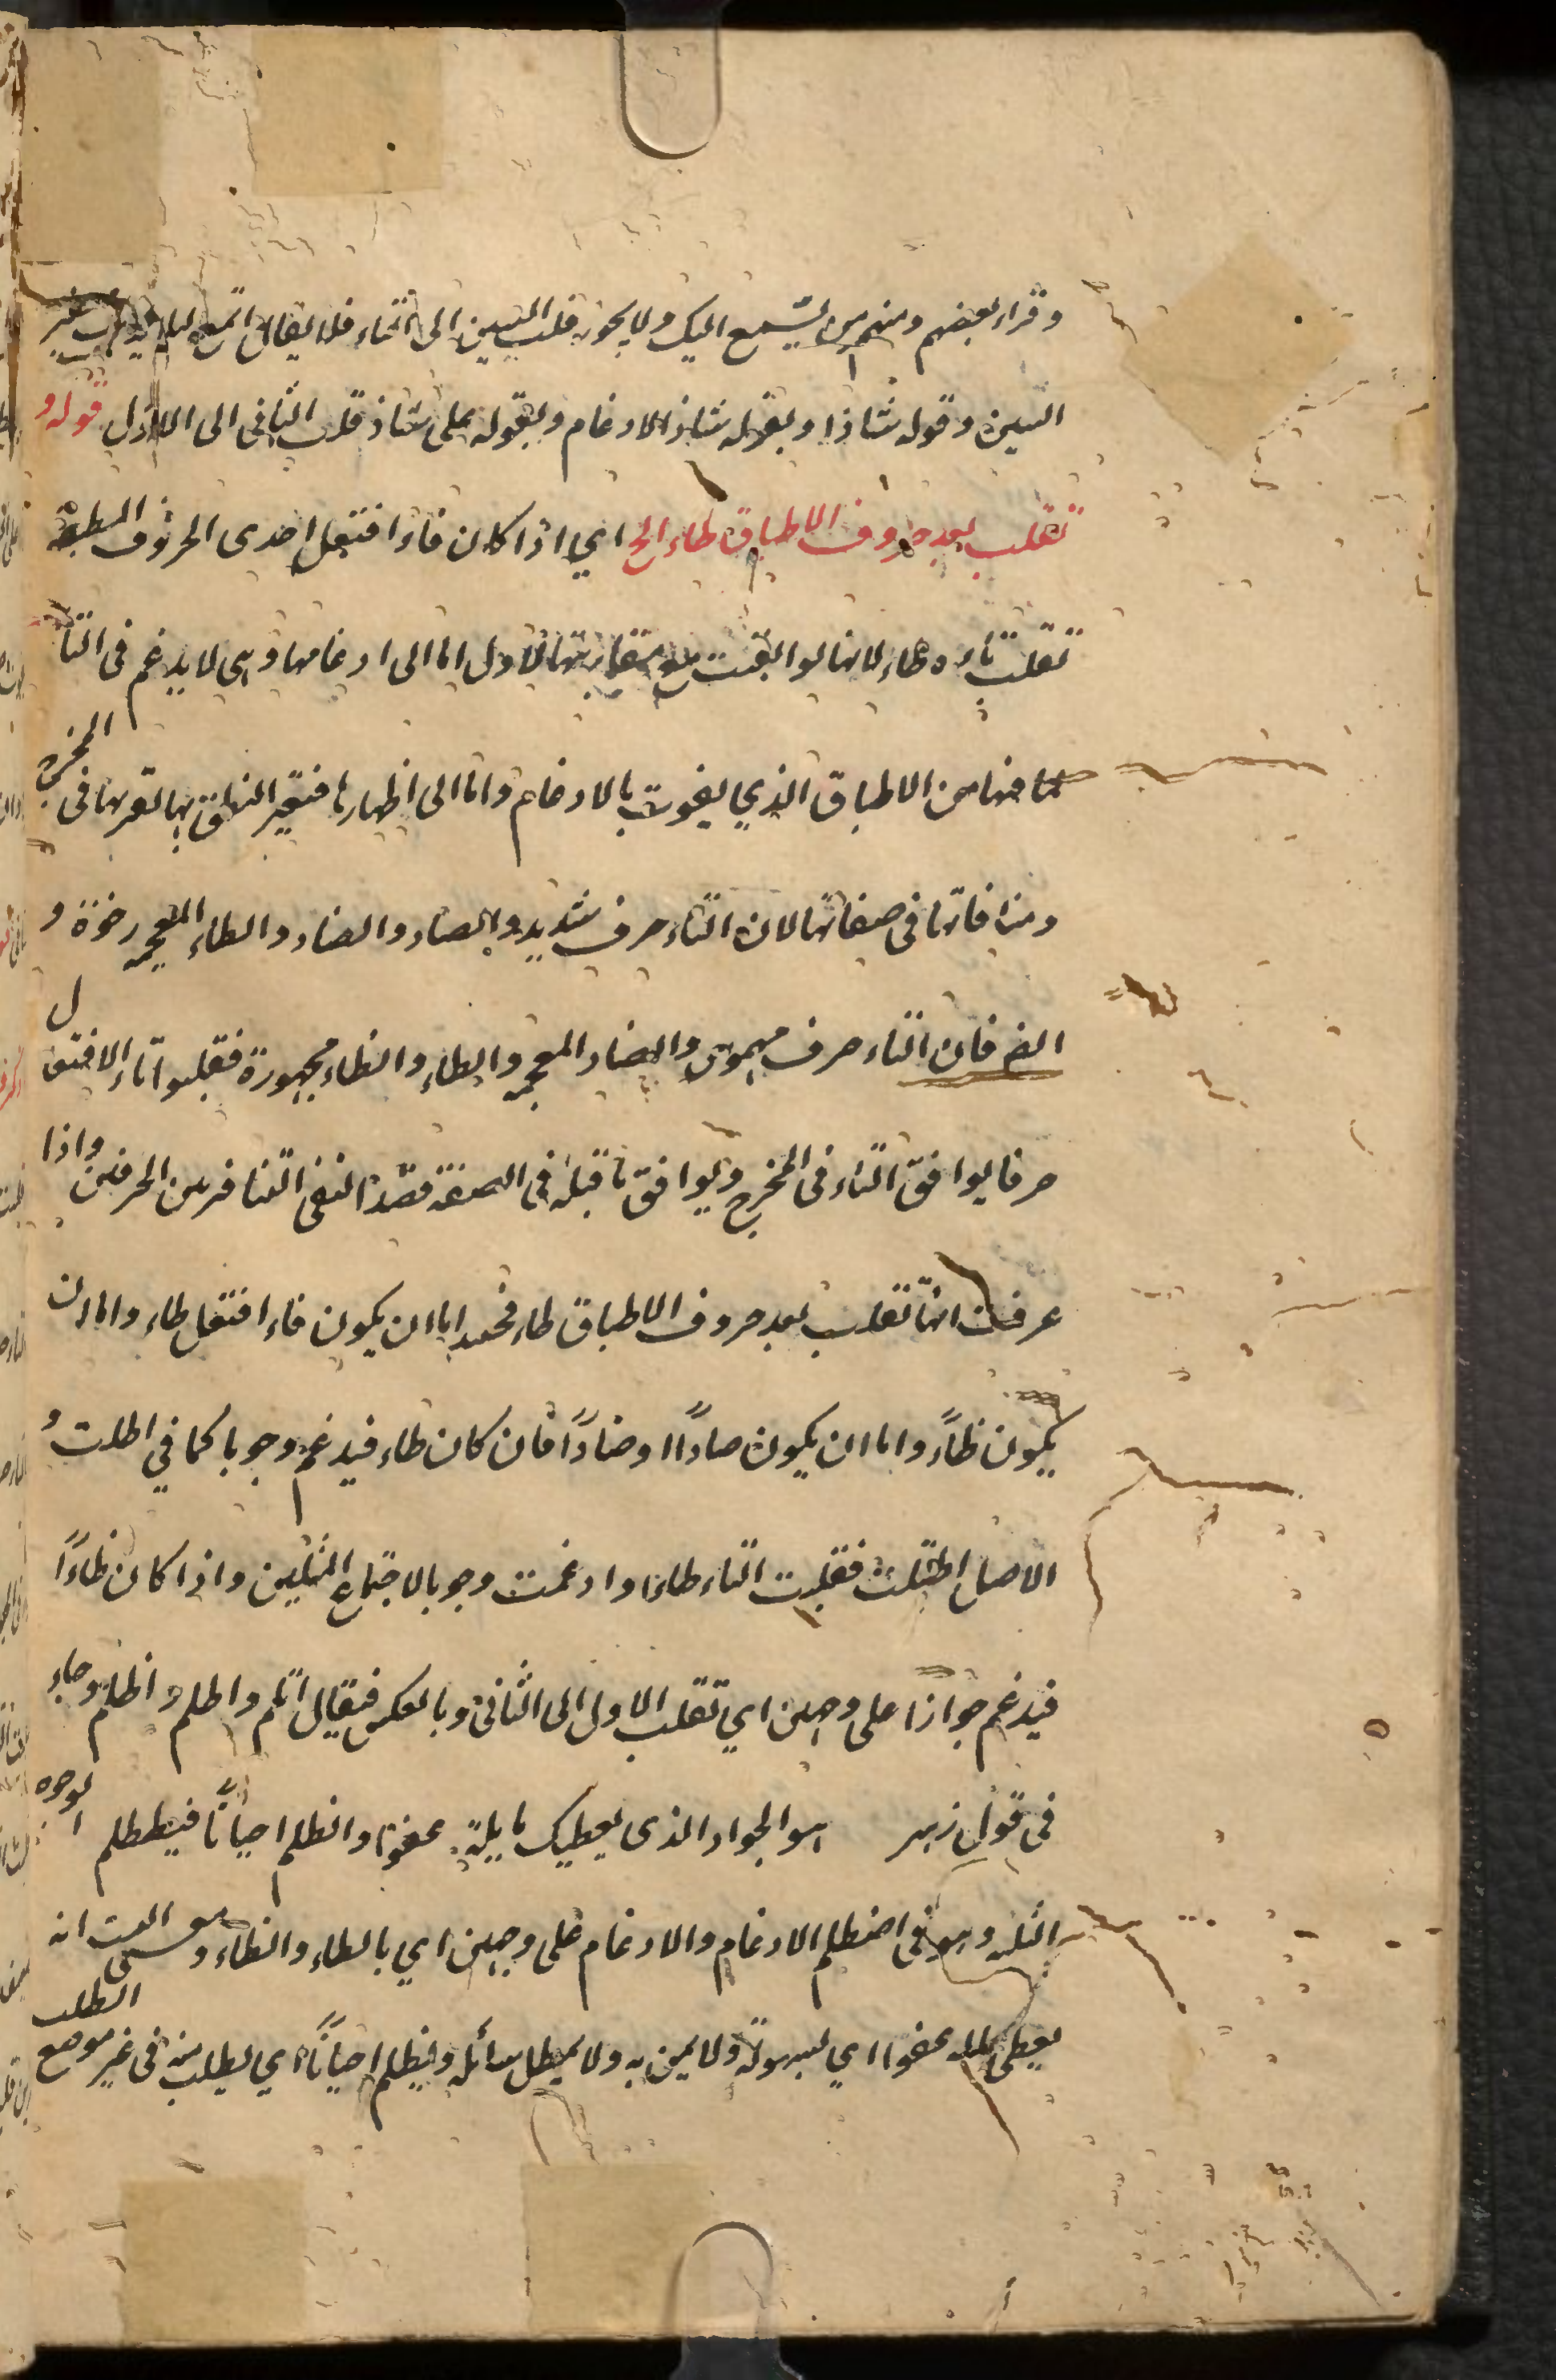 وقراء بعضهم ومنهم من يسّمع اليك ولا يجوز قلب السين الى التاء فلا يقال اتّمع لئلا يذهب صفير
السين وقوله شاذا وبقوله شاذ الادغام وبقوله على شاذ قلب الثانى الى الاول قوله و
تقلب بعد حروف الاطباق طاء الخ اي اذا كان فاء افتعل احدى الحروف المطبقة
تقلب تاءه طاء لانها لو ابقيت مع مقاربتها الاول اما الى ادغامها وهى لا يدغم فى التاء
لما فيها من الاطباق الذي يفوت بالادغام واما الى اظهارها فتعسر النطق بها لقربها فى المخرج
ومنافاتها فى صفاتها لان التاء حرف شديد والصاد والضاد والظاء المعجمة رخوة و
ايضا فان التاء حرف مهموس والضاد المعجمة والطاء والظاء مجهورة فقلبوا تاء الافتعال
حرفا يوافق التاء فى المخرج ويوافق ما قبله فى الصفة قصدا لنفى التنافر بين الحرفين واذا
عرفت انها تقلب بعد حروف الاطباق طاء فحينئذ اما ان يكون فاء افتعل طاء واما ان
يكون ظاءً واما ان يكون صادًا او ضادًا فان كان طاء فيدغم وجوبا كما في اطلب و
الاصل اطتلب فقلبت التاء طاءا وادغمت وجوبا لاجتماع المثلين واذا كان ظاءً
فيدغم جوازا على وجهين اي تقلب الاول الى الثانى وبالعكس فيقال اظلم واطلم واظطلم وجاء
فى قول زهير هو الجواد الذى يعطيك نايله عفوا ويظلم احيانًا فيظطلم الوجوه
الثلثة وهو فى اضطلم الادغام والادغام على وجهين اي بالطاء والظاء ومعنى البيت انه
يعطى ماله عفوا اي بسهولةً ولا يمن به ولا يمطل سائله ويظلم احيانًا اي يطلب منه فى غير موضع الطلب